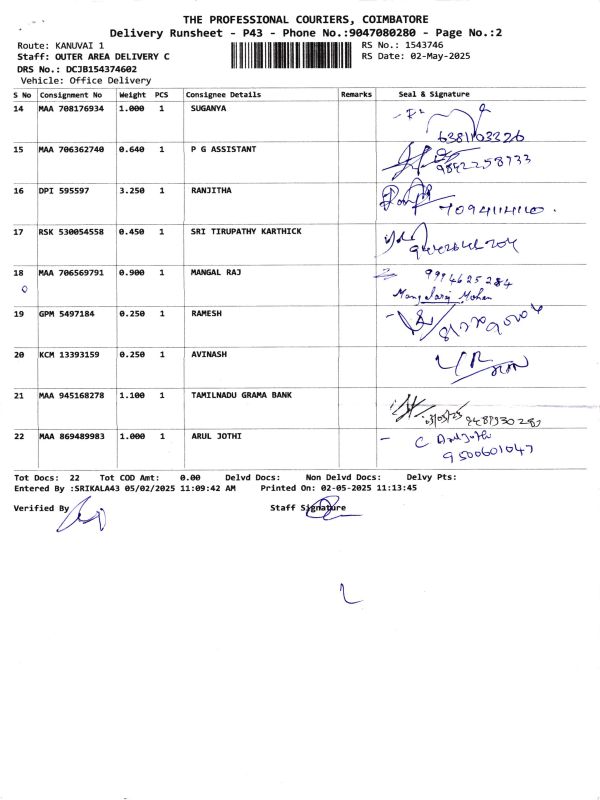 THE PROFESSIONAL COURIERS, COIMBATORE
Delivery Runsheet - P43 - Phone No.:9047080280 - Page No.:2
Route: KANUVAI 1 RS No.: 1543746
Staff: OUTER AREA DELIVERY C RS Date: 02-May-2025
DRS No.: DCJB154374602
Vehicle: Office Delivery
S No Consignment No Weight PCS Consignee Details Remarks Seal & Signature
14 MAA 708176934 1.000 1 SUGANYA
6381103326
15 MAA 706362740 0.640 1 P G ASSISTANT
9842258733
16 DPI 595597 3.250 1 RANJITHA
17 RSK 530054558 0.450 1 SRI TIRUPATHY KARTHICK
18 MAA 706569791 0.900 1 MANGAL RAJ 9994625284
Mangalaraj Mohan
19 GPM 5497184 0.250 1 RAMESH
20 KCM 13393159 0.250 1 AVINASH
21 MAA 945168278 1.100 1 TAMILNADU GRAMA BANK
22 MAA 869489983 1.000 1 ARUL JOTHI C Arul Jothi
9500601047
Tot Docs: 22 Tot COD Amt: 0.00 Delvd Docs: Non Delvd Docs: Delvy Pts:
Entered By :SRIKALA43 05/02/2025 11:09:42 AM Printed On: 02-05-2025 11:13:45
Verified By Staff Signature